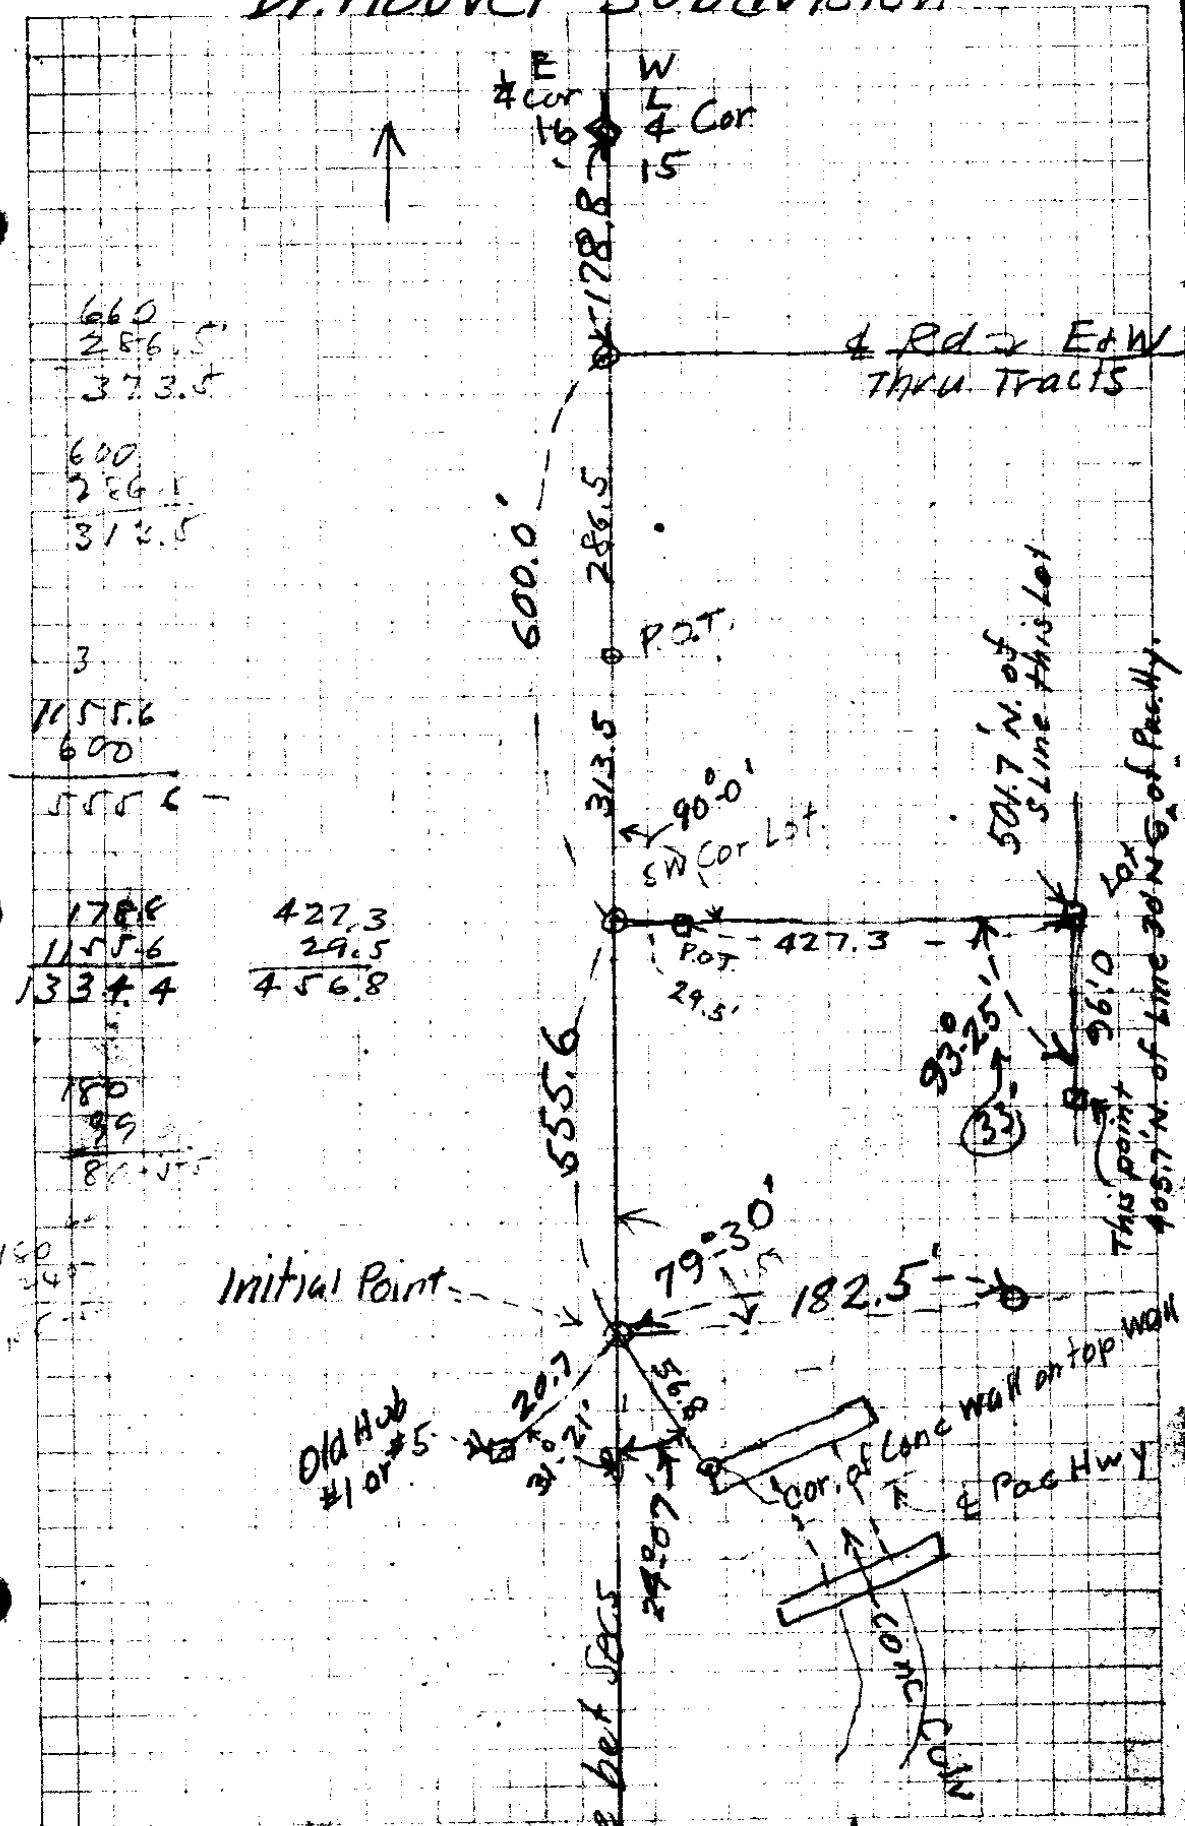 Dr. Hoover Subdivision
E
¼ Cor
16
W
¼ Cor
15
178.8
660
286.5'
373.5
℄ Rd E & W
Thru Tracts
600
286.5
313.5
600.0'
286.5
P.O.T.
3
1155.6
600
555 6 -
313.5
90°-0'
SW Cor Lot.
501.7' N. of
S Line this Lot
178.8
1155.6
1334.4
427.3
29.5
456.8
P.O.T.
427.3
29.5'
93°-25'
33'
96.0
Lot
This point
405.7' N. of Line 30' N of ℄ of Pac. Hy.
555.6
180
99
79°-30'
182.5'
Initial Point
20.7
31°-21'
56.8
Old Hub
#1 or #5
24°-07'
Cor. of Conc wall on top wall
℄ Pac Hwy
Conc Culv
bet Secs